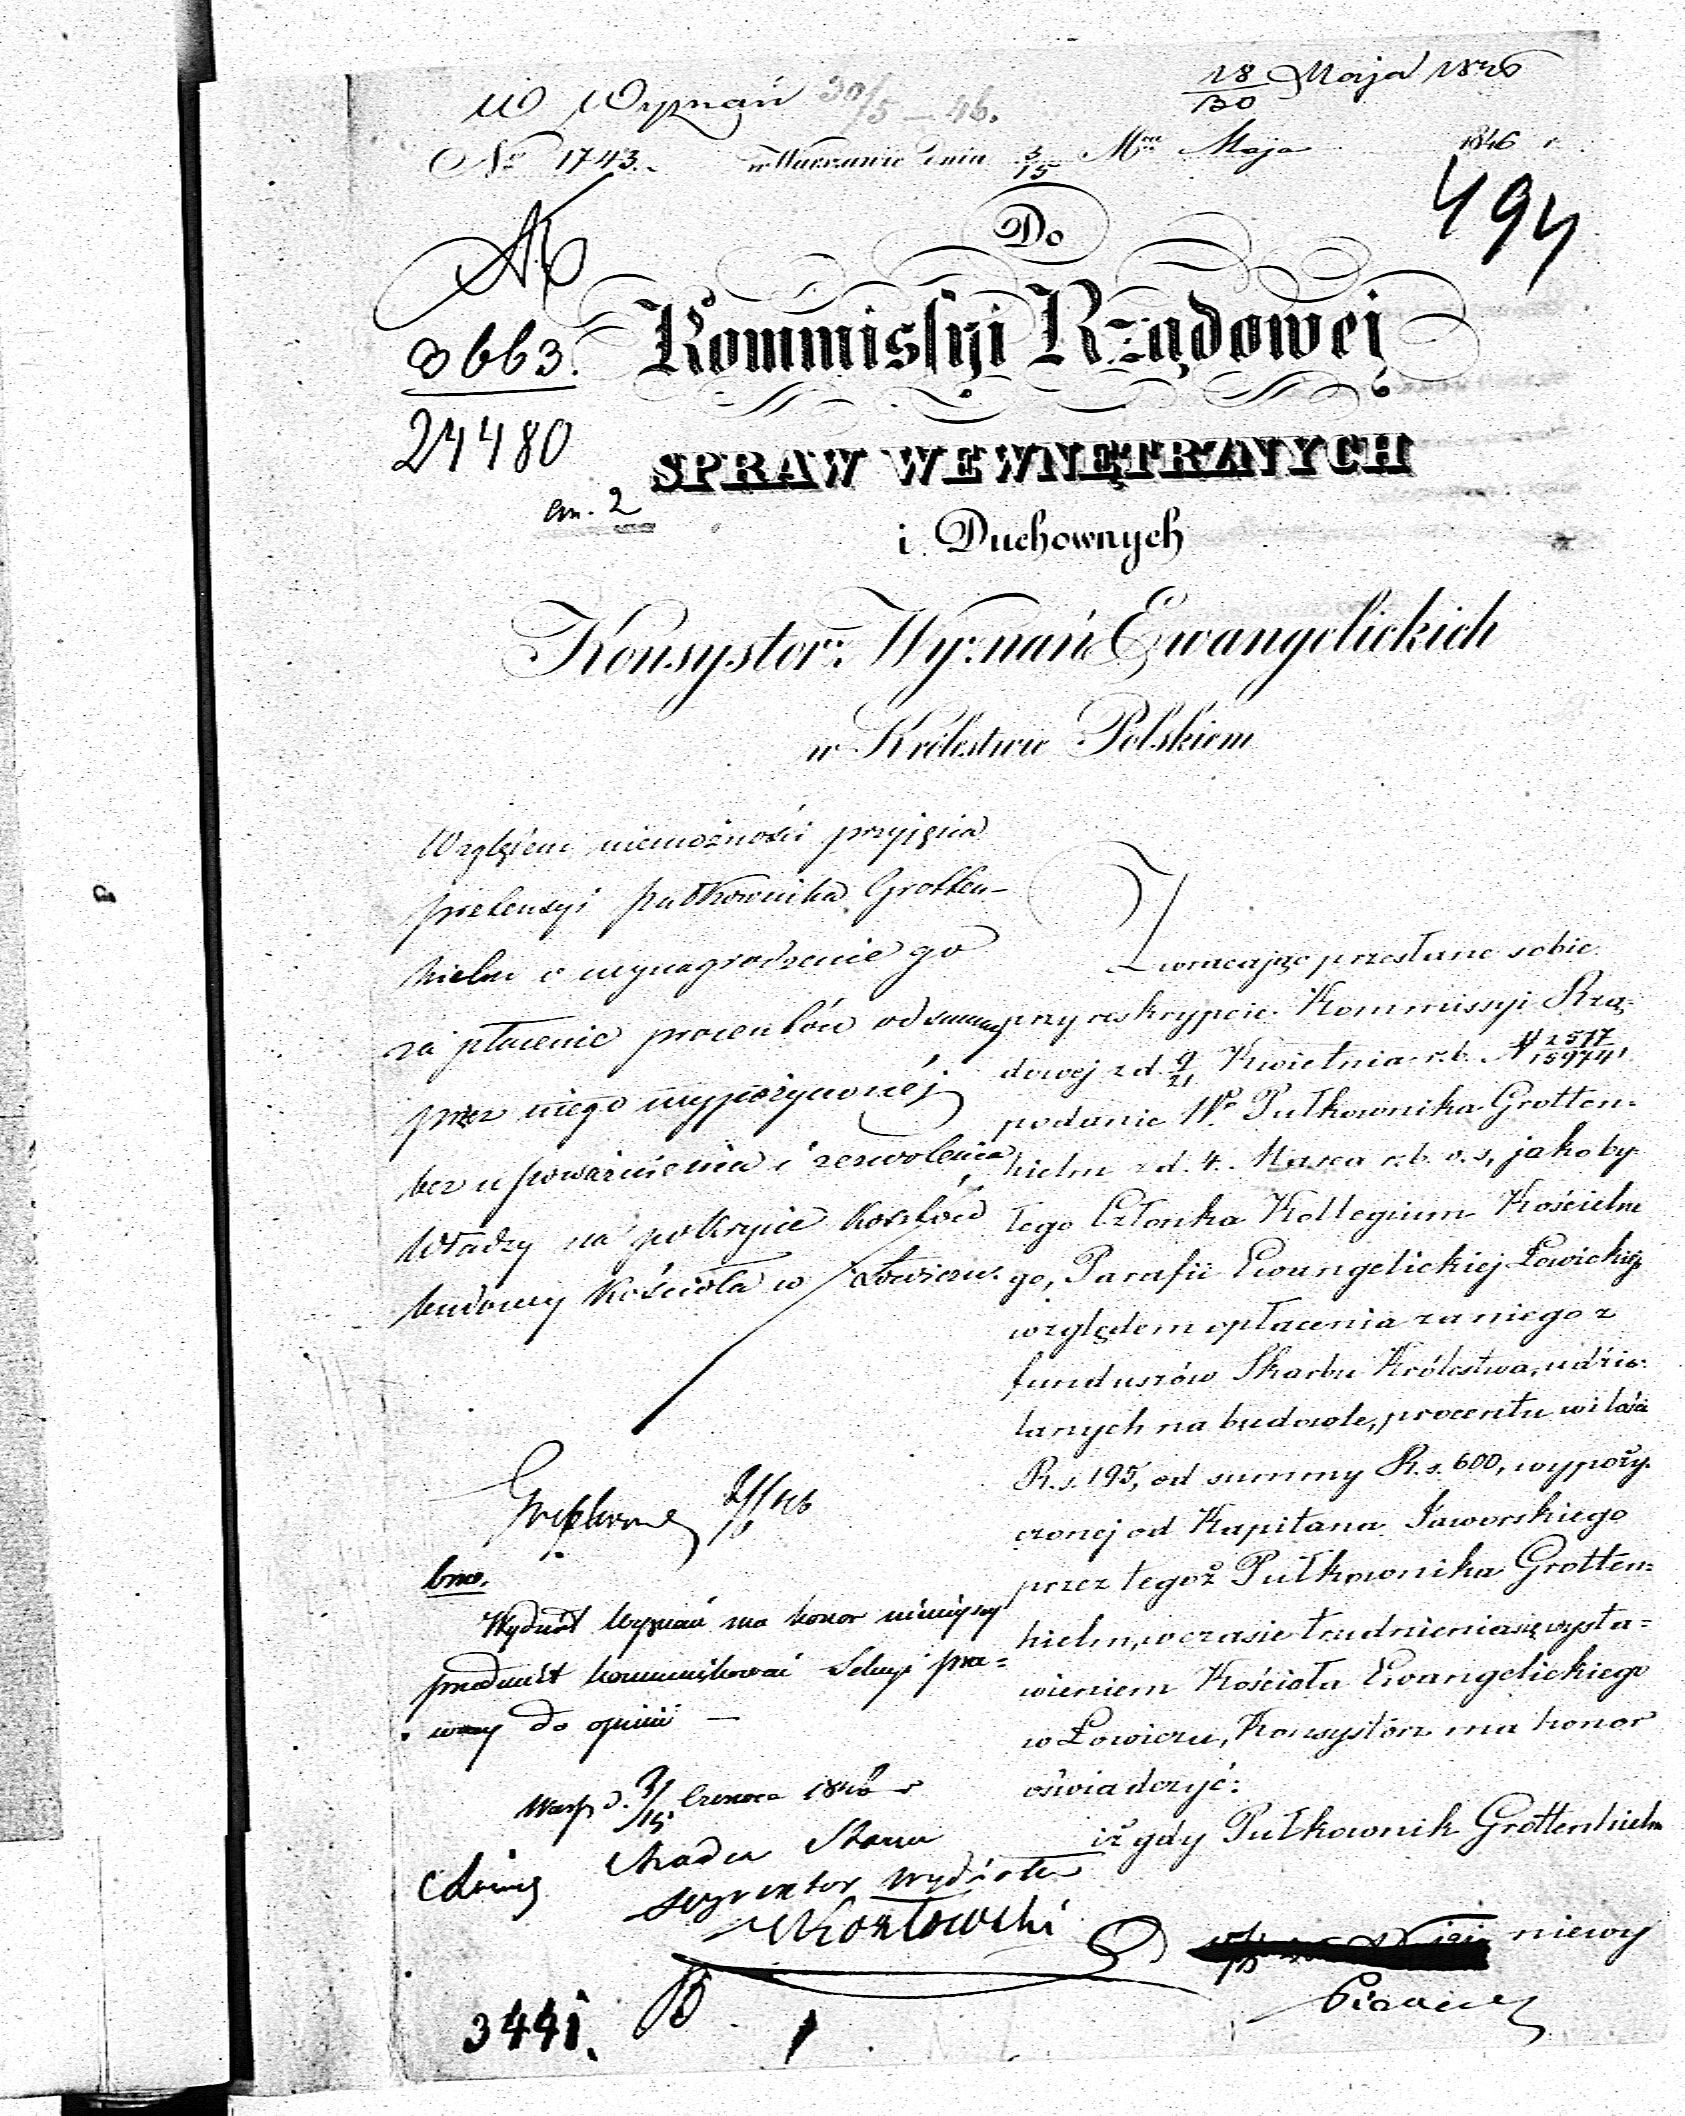 W Wyznań 30/5 - 46.
18/30 Maja 1846
No 1743. w Warszawie dnia 3/15 Mca Maja 1846 r.
494
Do
3663.
Kommissyi Rządowej
24480
SPRAW WEWNĘTRZNYCH
2
i Duchownych
Konsystorz Wyznań Ewangelickich
w Królestwie Polskiem
Względem niemożności przyjęcia
pretensyi Pułkownika Grotten-
hielm o wynagrodzenie go
za płacenie procentów od summy
przez niego wypożyczonéj
bez upoważnienia i zezwolenia
Władzy na pokrycie kosztów
budowy Kościoła w Łowiczu.
Zwracając przesłane sobie
przy reskrypcie Kommissyi Rzą-
dowej z d. 9/21 Kwietnia r.b. N 2577/15974
podanie Wo Pułkownika Grotten-
hielm z d. 4. Marca r.b. v.s, jako by-
łego Członka Kollegium Kościelne
go, Parafii Ewangelickiej Łowickiej
względem opłacenia za niego z
funduszów Skarbu Królestwa, udzie-
lanych na budowle, procentu w ilości
R.s. 195, od summy R.s. 600, wypoży-
czonej od Kapitana Jaworskiego
przez tegoż Pułkownika Grotten-
hielm, w czasie trudnienia się wysta-
wieniem Kościoła Ewangelickiego
w Łowiczu, Konsystorz ma honor
oświadczyć:
iż gdy Pułkownik Grottenhielm
niewy
Wydział Wyznań ma honor niniejszy
przedmiot kommunikować Sekcyi pra-
wnej do opinii —
Warsz d. 3/15 Czerwca 1846 r
Radca Stanu
Dyrektor Wydziału
Kozłowski
3441.